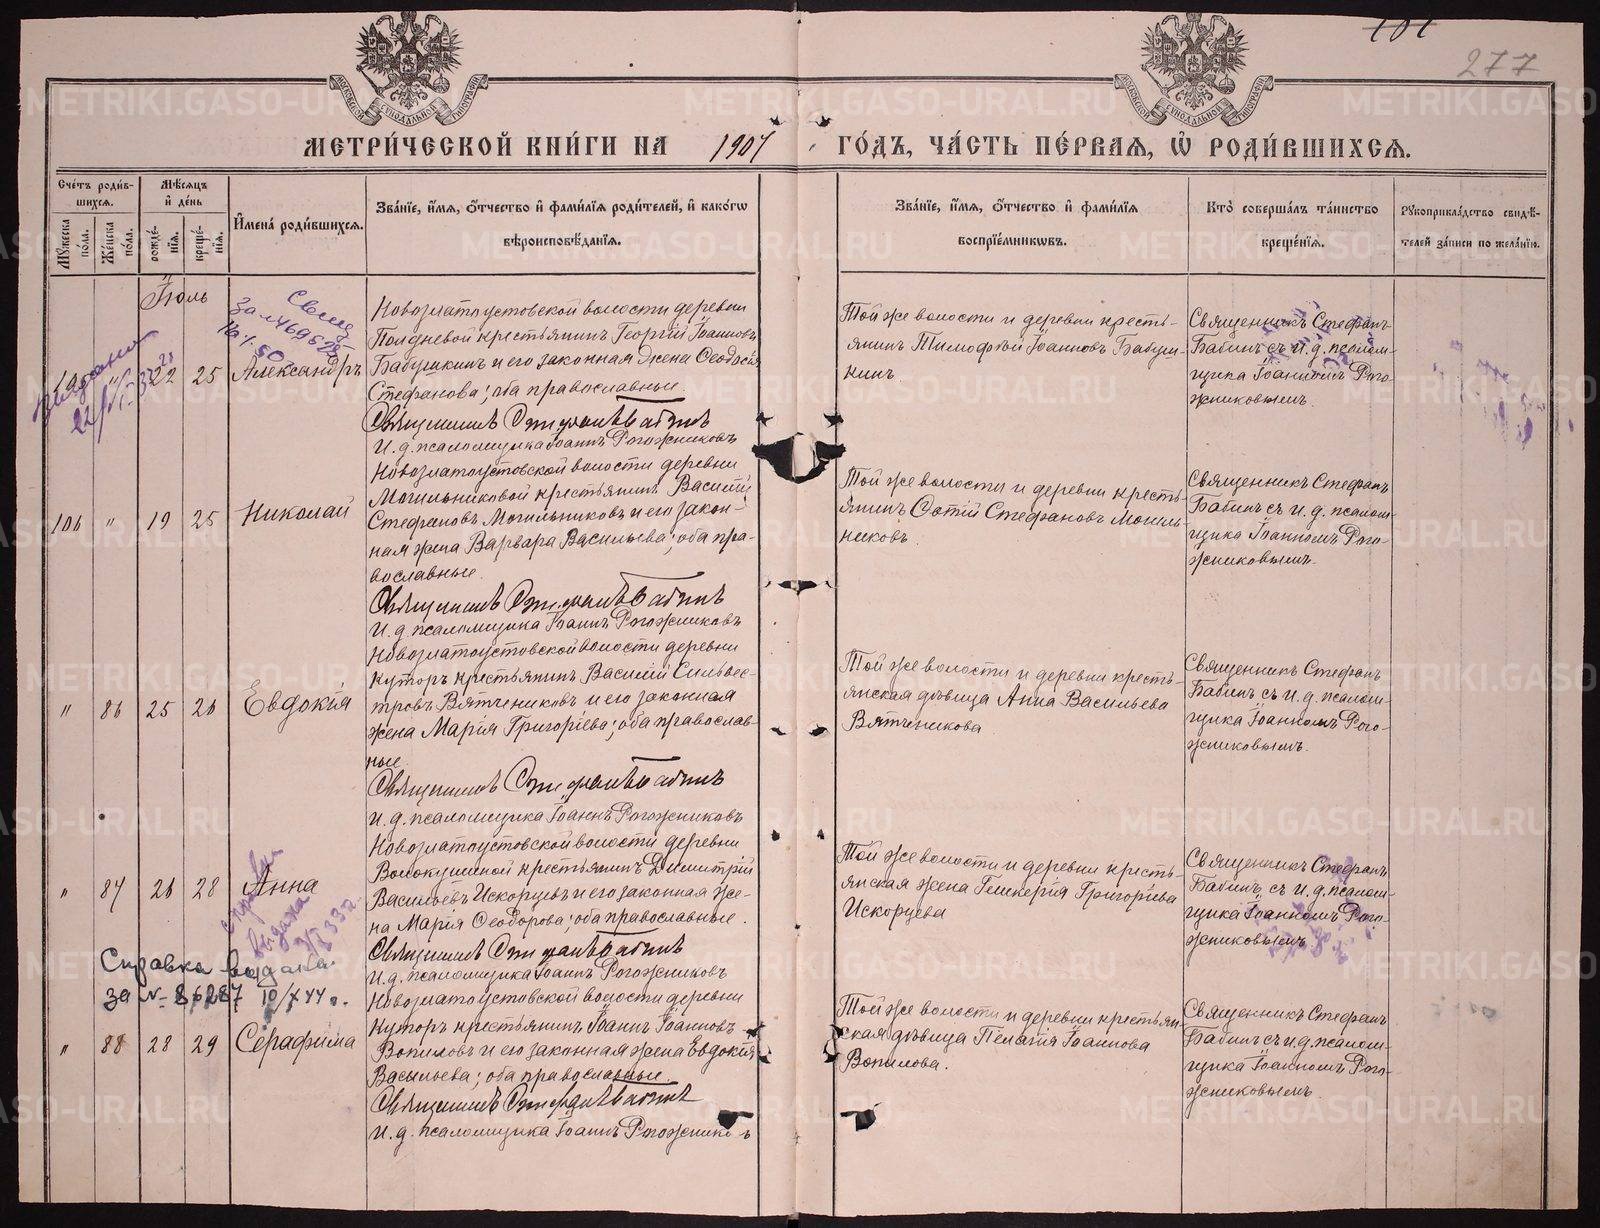 101
277
МЕТРИ́ЧЕСКОЙ КНИ́ГИ НА 1907 ГО́ДЪ, ЧА́СТЬ ПЕ́РВАѦ, Ѡ РОДИ́ВШИХСѦ.
Сче́тъ роди́вшихсѧ.
Мѣ́сѧцъ и҆ де́нь
Мꙋ́жеска по́ла.
Же́нска по́ла.
рожде́нїѧ.
креще́нїѧ.
И҆мена̀ роди́вшихсѧ.
Зва́нїе, и҆́мѧ, ѻ҆́тчество и҆ фами́лїѧ роди́телей, и҆ како́гѡ
вѣроисповѣ́данїѧ.
Зва́нїе, и҆́мѧ, ѻ҆́тчество и҆ фами́лїѧ
воспрїе́мникѡвъ.
Кто̀ соверша́лъ та́инство
креще́нїѧ.
Рꙋкоприкла́дство свидѣ́телей за́писи по жела́нїю.
Іюль
22 25 Александръ
Новозлатоустовской волости деревни
Полдневой крестьянинъ Георгій Іоанновъ
Бабушкинъ и его законная жена Ѳеодосія
Стефанова; оба православные
Священникъ Стефанъ Бабинъ
И. д. псаломщика Іоаннъ Рогожниковъ
Той же волости и деревни кресть-
янинъ Тимофей Іоанновъ Бабуш-
кинъ
Священникъ Стефанъ
Бабинъ съ и. д. псалом-
щика Іоанномъ Рого-
жниковымъ.
106 " 19 25 Николай
Новозлатоустовской волости деревни
Могильниковой крестьянинъ Василій
Стефановъ Могильниковъ и его закон-
ная жена Варвара Васильева; оба пра-
вославные.
Священникъ Стефанъ Бабинъ
И. д. псаломщика Іоаннъ Рогожниковъ
Той же волости и деревни кресть-
янинъ Фотій Стефановъ Могиль-
никовъ.
Священникъ Стефанъ
Бабинъ съ и. д. псалом-
щика Іоанномъ Рого-
жниковымъ.
" 86 25 26 Евдокія
Новозлатоустовской волости деревни
Хуторъ крестьянинъ Василій Сильвес-
тровъ Вятчениковъ и его законная
жена Марія Григоріева; оба православ-
ные.
Священникъ Стефанъ Бабинъ
И. д. псаломщика Іоаннъ Рогожниковъ
Той же волости и деревни кресть-
янская дѣвица Анна Васильева
Вятченикова
Священникъ Стефанъ
Бабинъ съ и. д. псалом-
щика Іоанномъ Рого-
жниковымъ.
" 87 26 28 Анна
Новозлатоустовской волости деревни
Волокушеной крестьянинъ Димитрій
Васильевъ Искорцевъ и его законная же-
на Марія Ѳеодорова; оба православные.
Священникъ Стефанъ Бабинъ
И. д. псаломщика Іоаннъ Рогожниковъ
Той же волости и деревни кресть-
янская жена Гликерія Григоріева
Искорцева
Священникъ Стефанъ
Бабинъ съ и. д. псалом-
щика Іоанномъ Рого-
жниковымъ
Справка выдана
за № 86287 10/X 44 г.
" 88 28 29 Серафима
Новозлатоустовской волости деревни
Хуторъ крестьянинъ Іоаннъ Іоанновъ
Вопиловъ и его законная жена Евдокія
Васильева; оба православные.
Священникъ Стефанъ Бабинъ
И. д. псаломщика Іоаннъ Рогожниковъ
Той же волости и деревни крестьян-
ская дѣвица Пелагія Іоаннова
Вопилова.
Священникъ Стефанъ
Бабинъ съ и. д. псалом-
щика Іоанномъ Рого-
жниковымъ.
METRIKI.GASO-URAL.RU